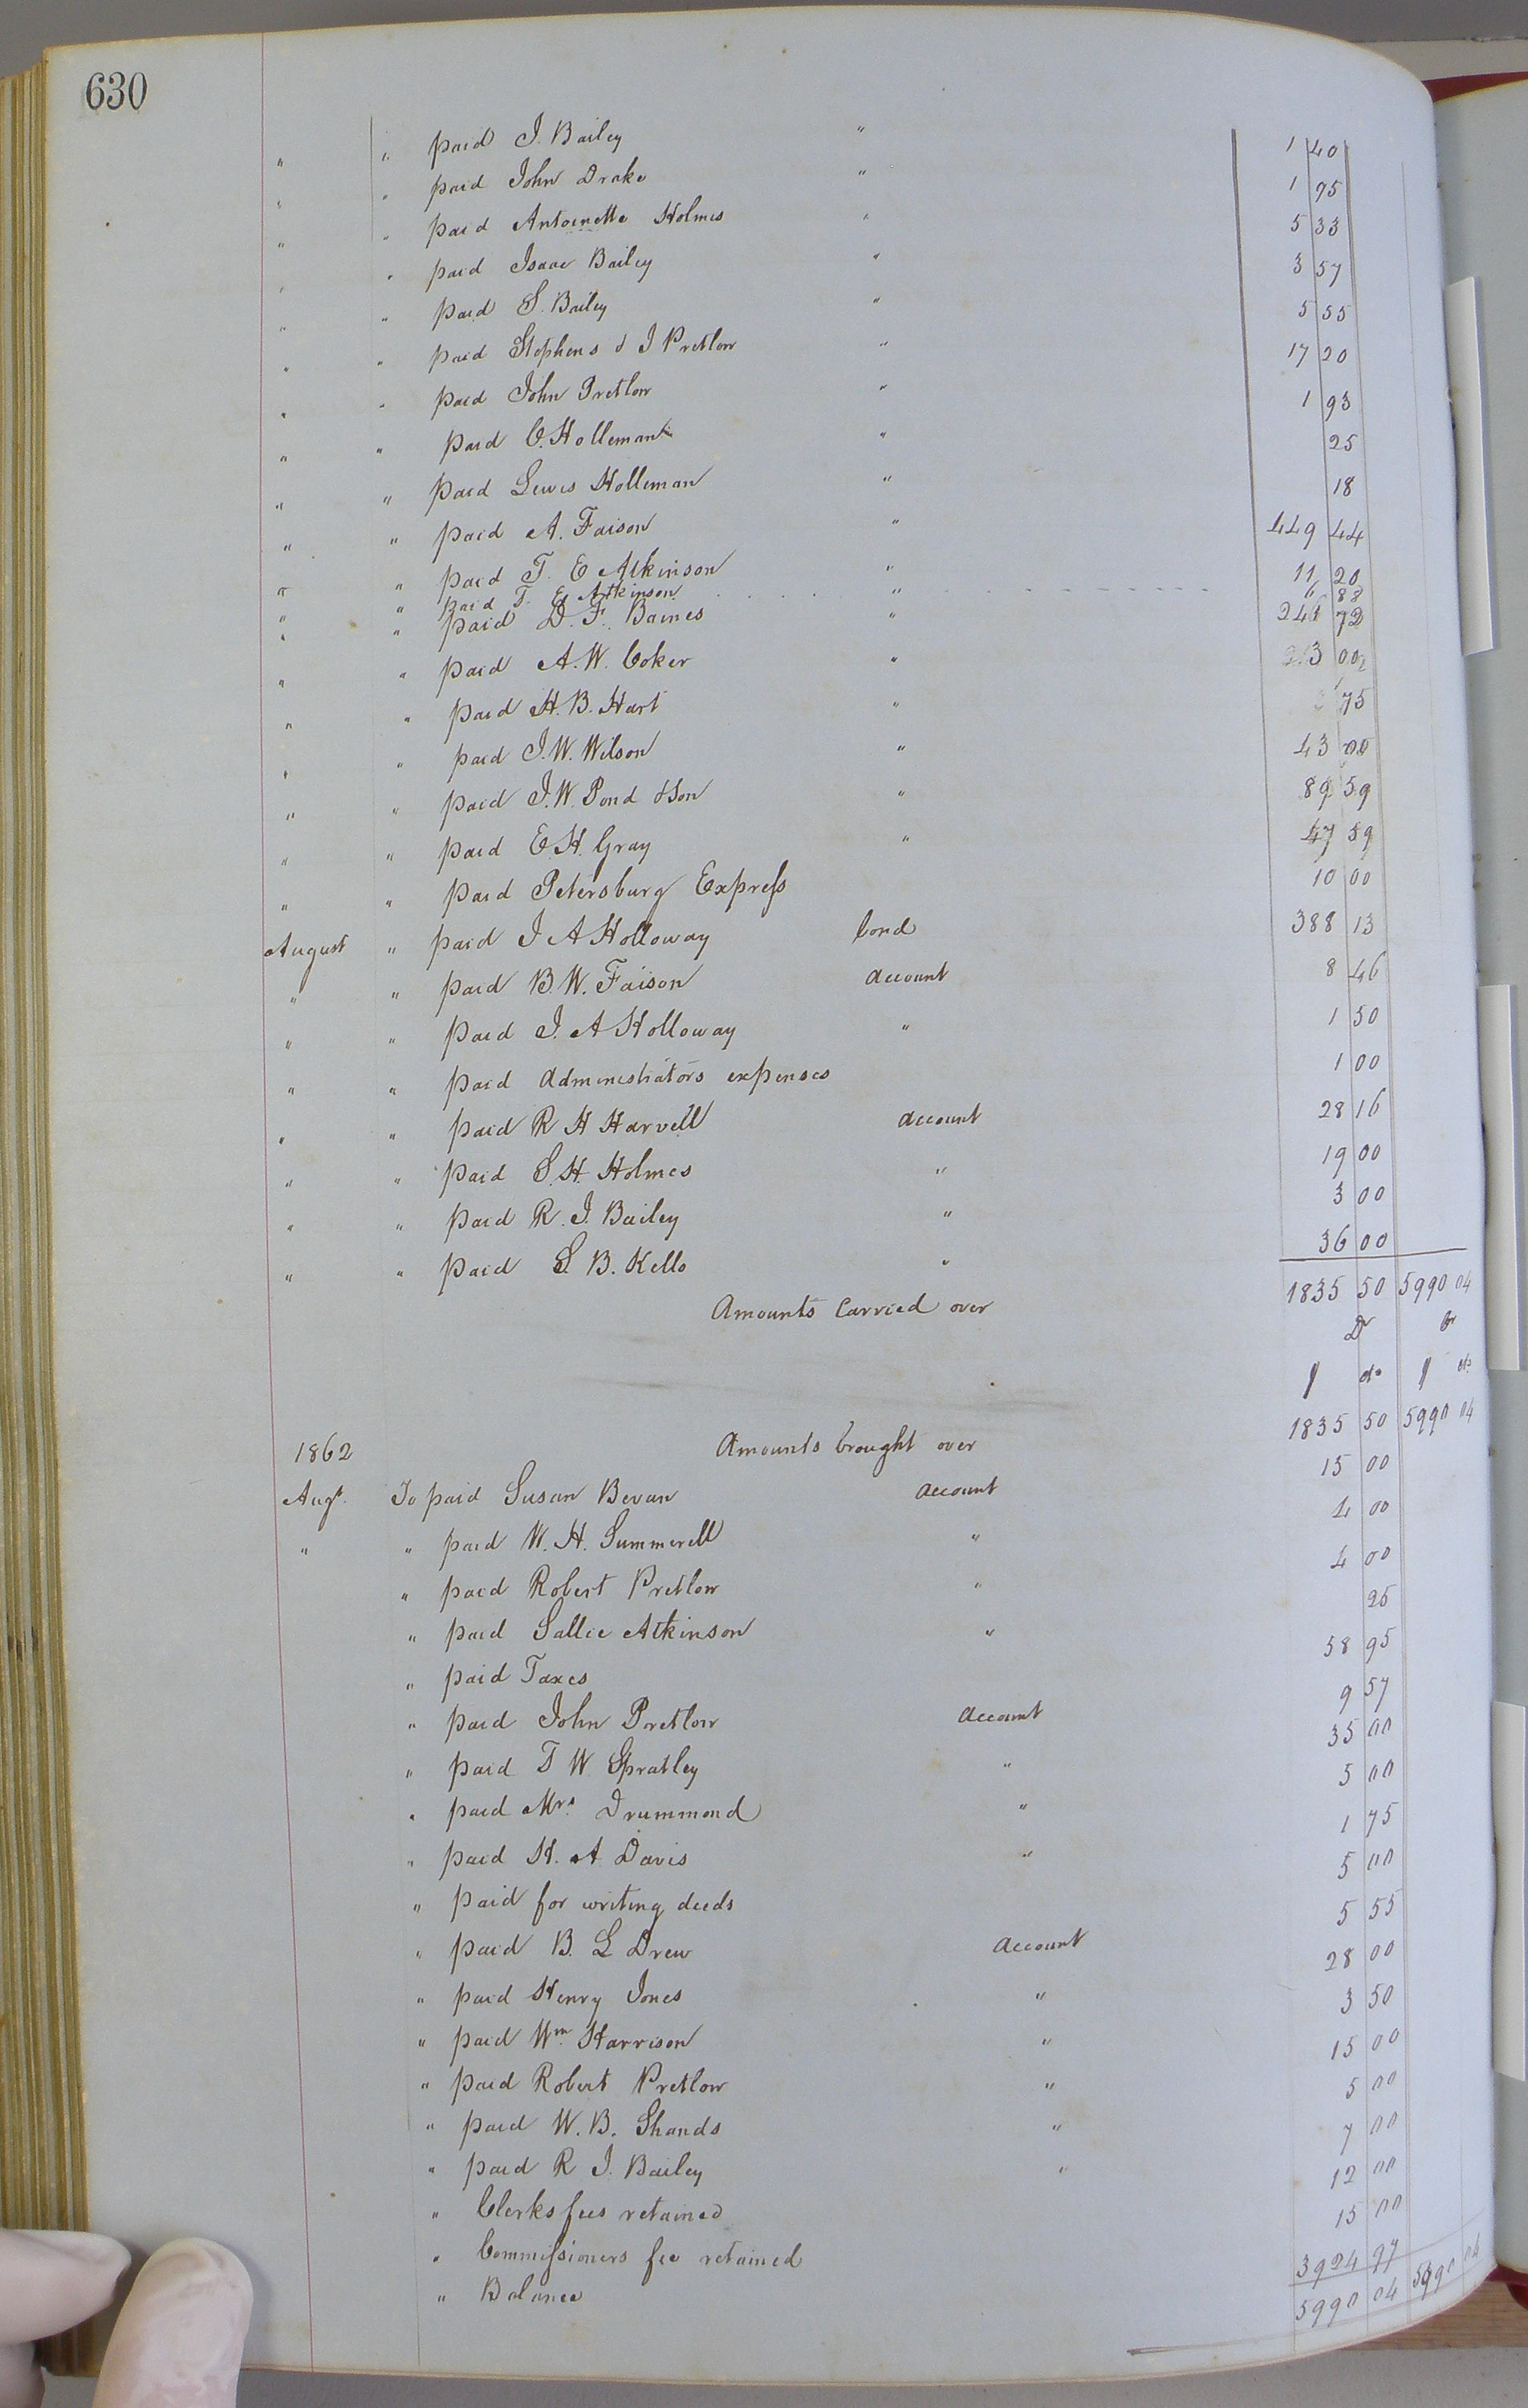 630
" " paid J. Bailey " 1 40
" " paid John Drake " 1 75
" " paid Antoinette Holmes " 5 33
" " paid Isaac Bailey " 3 57
" " paid S. Bailey " 5 55
" " paid Stephens & J Pretlow " 17 20
" " paid John Pretlow " 1 93
" " paid C. Holleman " 25
" " paid Lewis Holleman " 18
" " paid A. Faison " 449 44
" " paid T. E Atkinson " 11 20
" " paid T. E Atkinson " 6 88
" " paid D. F. Baines " 246 72
" " paid A. W. Coker " 00
" " paid H. B. Hart " 75
" " paid J. W. Wilson " 43 00
" " paid J. W. Pond & Son " 89 59
" " paid E. H. Gray " 47 59
" " paid Petersburg Express 10 00
August " paid J A Holloway bond 388 13
" " paid B. W. Faison account 8 46
" " paid J. A Holloway " 1 50
" " paid Administrators expenses 1 00
" " paid R H Harvell account 28 16
" " paid S. H. Holmes " 19 00
" " paid R. J. Bailey " 3 00
" " paid S. B. Kello " 36 00
Amounts Carried over 1835 50 5990 04
Dr Cr
$ cts $ cts
1862 Amounts brought over 1835 50 5990 04
Augt. To paid Susan Bevan account 15 00
" " paid W. H. Summerell " 4 00
" paid Robert Pretlow " 4 00
" paid Sallie Atkinson " 25
" paid Taxes 58 95
" paid John Pretlow account 9 57
" paid T W Spratley " 35 00
" paid Mrs. Drummond " 5 00
" paid H. A Davis " 1 75
" paid for writing deeds 5 00
" paid B. L Drew account 5 55
" paid Henry Jones " 28 00
" paid Wm Harrison " 3 50
" paid Robert Pretlow " 15 00
" paid W. B. Shands " 5 00
" paid R J. Bailey " 7 00
" Clerks fees retained 12 00
" Commissioners fee retained 15 00
" Balance 3924 97
5990 04 5990 04